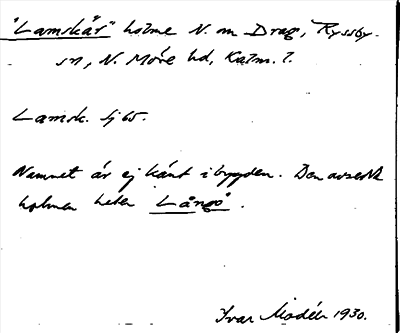 "Lamskär" holme N. om Drag, Ryssby
sn, N. Möre hd, Kalm. l.
Lamsk. Sj 65.
Namnet är ej känt i bygden. Den avsedda
holmen heter Långö.
Ivar Modéer 1930.